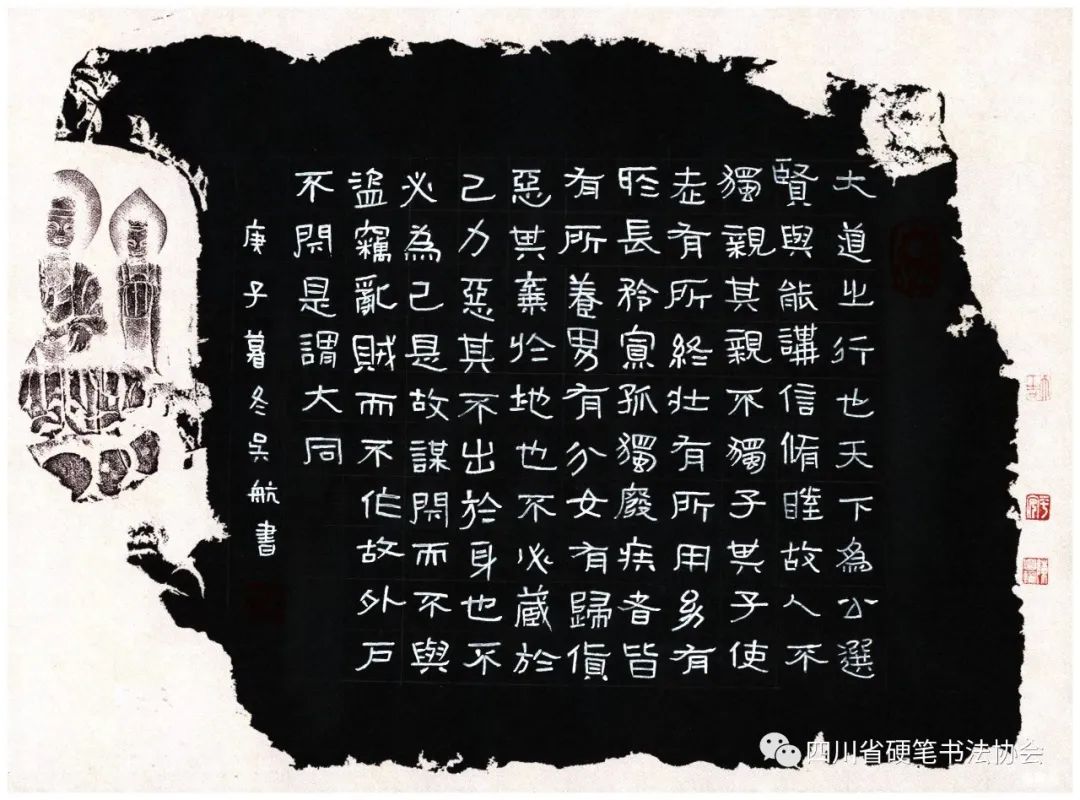 大道之行也天下為公選
賢與能講信脩睦故人不
獨親其親不獨子其子使
老有所終壯有所用幼有
所長矜寡孤獨廢疾者皆
有所養男有分女有歸貨
惡其棄於地也不必蔵於
己力惡其不出於身也不
必為己是故謀閉而不興
盜竊亂賊而不作故外戶
不閉是謂大同
庚子暮冬吳航書
四川省硬笔书法协会